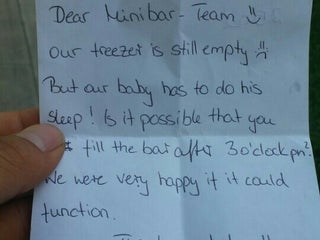 Dear Minibar-Team ☺
our freezer is still empty ☹
But our baby has to do his
sleep! Is it possible that you
fill the bar after 3 o'clock pm?
We were very happy if it could
function.